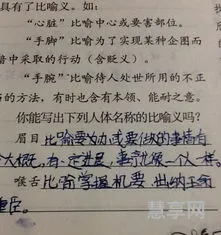 具有了比喻义。如:
“心脏”比喻中心或要害部位。
“手脚”比喻为了实现某种企图而
暗中采取的行动（含贬义）。
“手腕”比喻待人处世所用的不正
的方法，有时也含有本领、能耐之意。
你能写出下列人体名称的比喻义吗?
眉目 比喻要办或要做的事情有
个大概, 有一定进展, 事
喉舌 比喻掌握机要、出纳王命
重臣。
慧享网